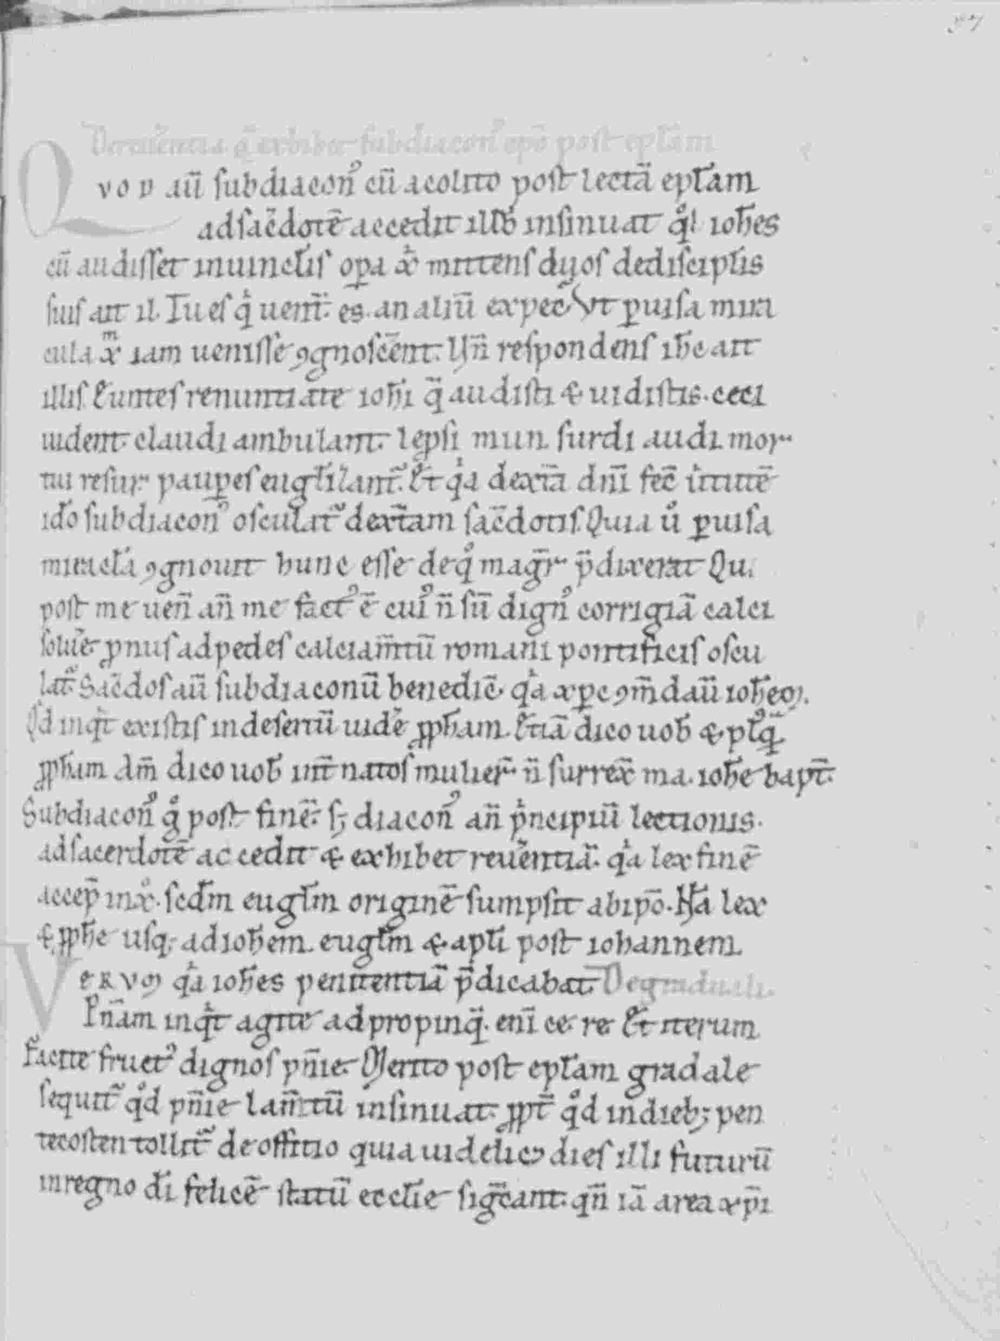 37
De reuerentia q̄ exhibet subdiacon⁹ ep̄o post ep̄lam
QVOD aū subdiacon⁹ cū acolito post lectā ep̄lam
ad sac̄dotē accedit illud insinuat qd̛ ioh̄es
cū audisset in uinclīs oꝑa xp̄i mittens duos de discipłis
suis ait il. Tu es q̍ uent̄. es. an aliū expec. Vt ꝑ uisa mira
cula xp̄m iam uenisse ꝯgnoscēnt. Vn̄ respondens ih̄c ait
illis. Euntes renuntiate ioh̄i q̄ audisti & uidistis. ceci
uident. claudi ambulant. lep̄si mun. surdi audi. mor
tui resur. pauꝑes eugl̄ilant̛. Et q̍a dext̄a dn̄i fec̄ u̍tutē
id̄o subdiacon⁹ osculat̛ dext̄am sac̄dotis. Quia ư ꝑ uisa
miracl̄a ꝯgnouit hunc esse de q̛ magr̄ p̄dixerat Qui
post me uen̄ an̄ me fact⁹ ē cui⁹ n̄ sū dign⁹ corrigiā calci
solue̛ ꝓnus ad pedes calciam̄tū romani pontificis oscu
lat̛. Sac̄dos aū subdiaconū benedic̄. q̍a xp̄c ꝯm̄dauit ioh̄em.
Qd inq̍t existis in desertū uide̛ ꝓph̄am. Etiā dico uob̄ & pl̛q̄
ꝓph̄am. Am̄ dico uob̄ int̄ natos mulier̄ n̄ surrex̄ ma. ioh̄e bapt̄.
Subdiacon⁹ g̛ post finē. sꝫ diacon⁹ an̄ p̍ncipiū lectionis.
ad sacerdotē accedit & exhibet reue̛ntiā. q̍a lex finē
accep̄ in xp̄o. sed̄m eugl̄m originē sumpsit ab ip̄o. Nā lex
& ꝓph̄e usq; ad ioh̄em. eugl̄m & apl̄i post iohannem.
VERVM q̍a ioh̄es penitentiā p̄dicabat. De graduali.
Pn̄am inq̍t agite adpropinq̄. eni̅ ce. re. Et iterum
Facite fruct⁹ dignos pn̄ie. Merito post ep̄lam gradale
sequit̛ qd̛ pn̄ie lam̄tū insinuat. ꝓpt̄ qd̛ in dieb; pen
tecosten tollit̛ de offitio quia uidelicꝫ dies illi futurū
in regno dī felicē statū eccl̄ie siḡcant. qn̄ iā area xp̄i